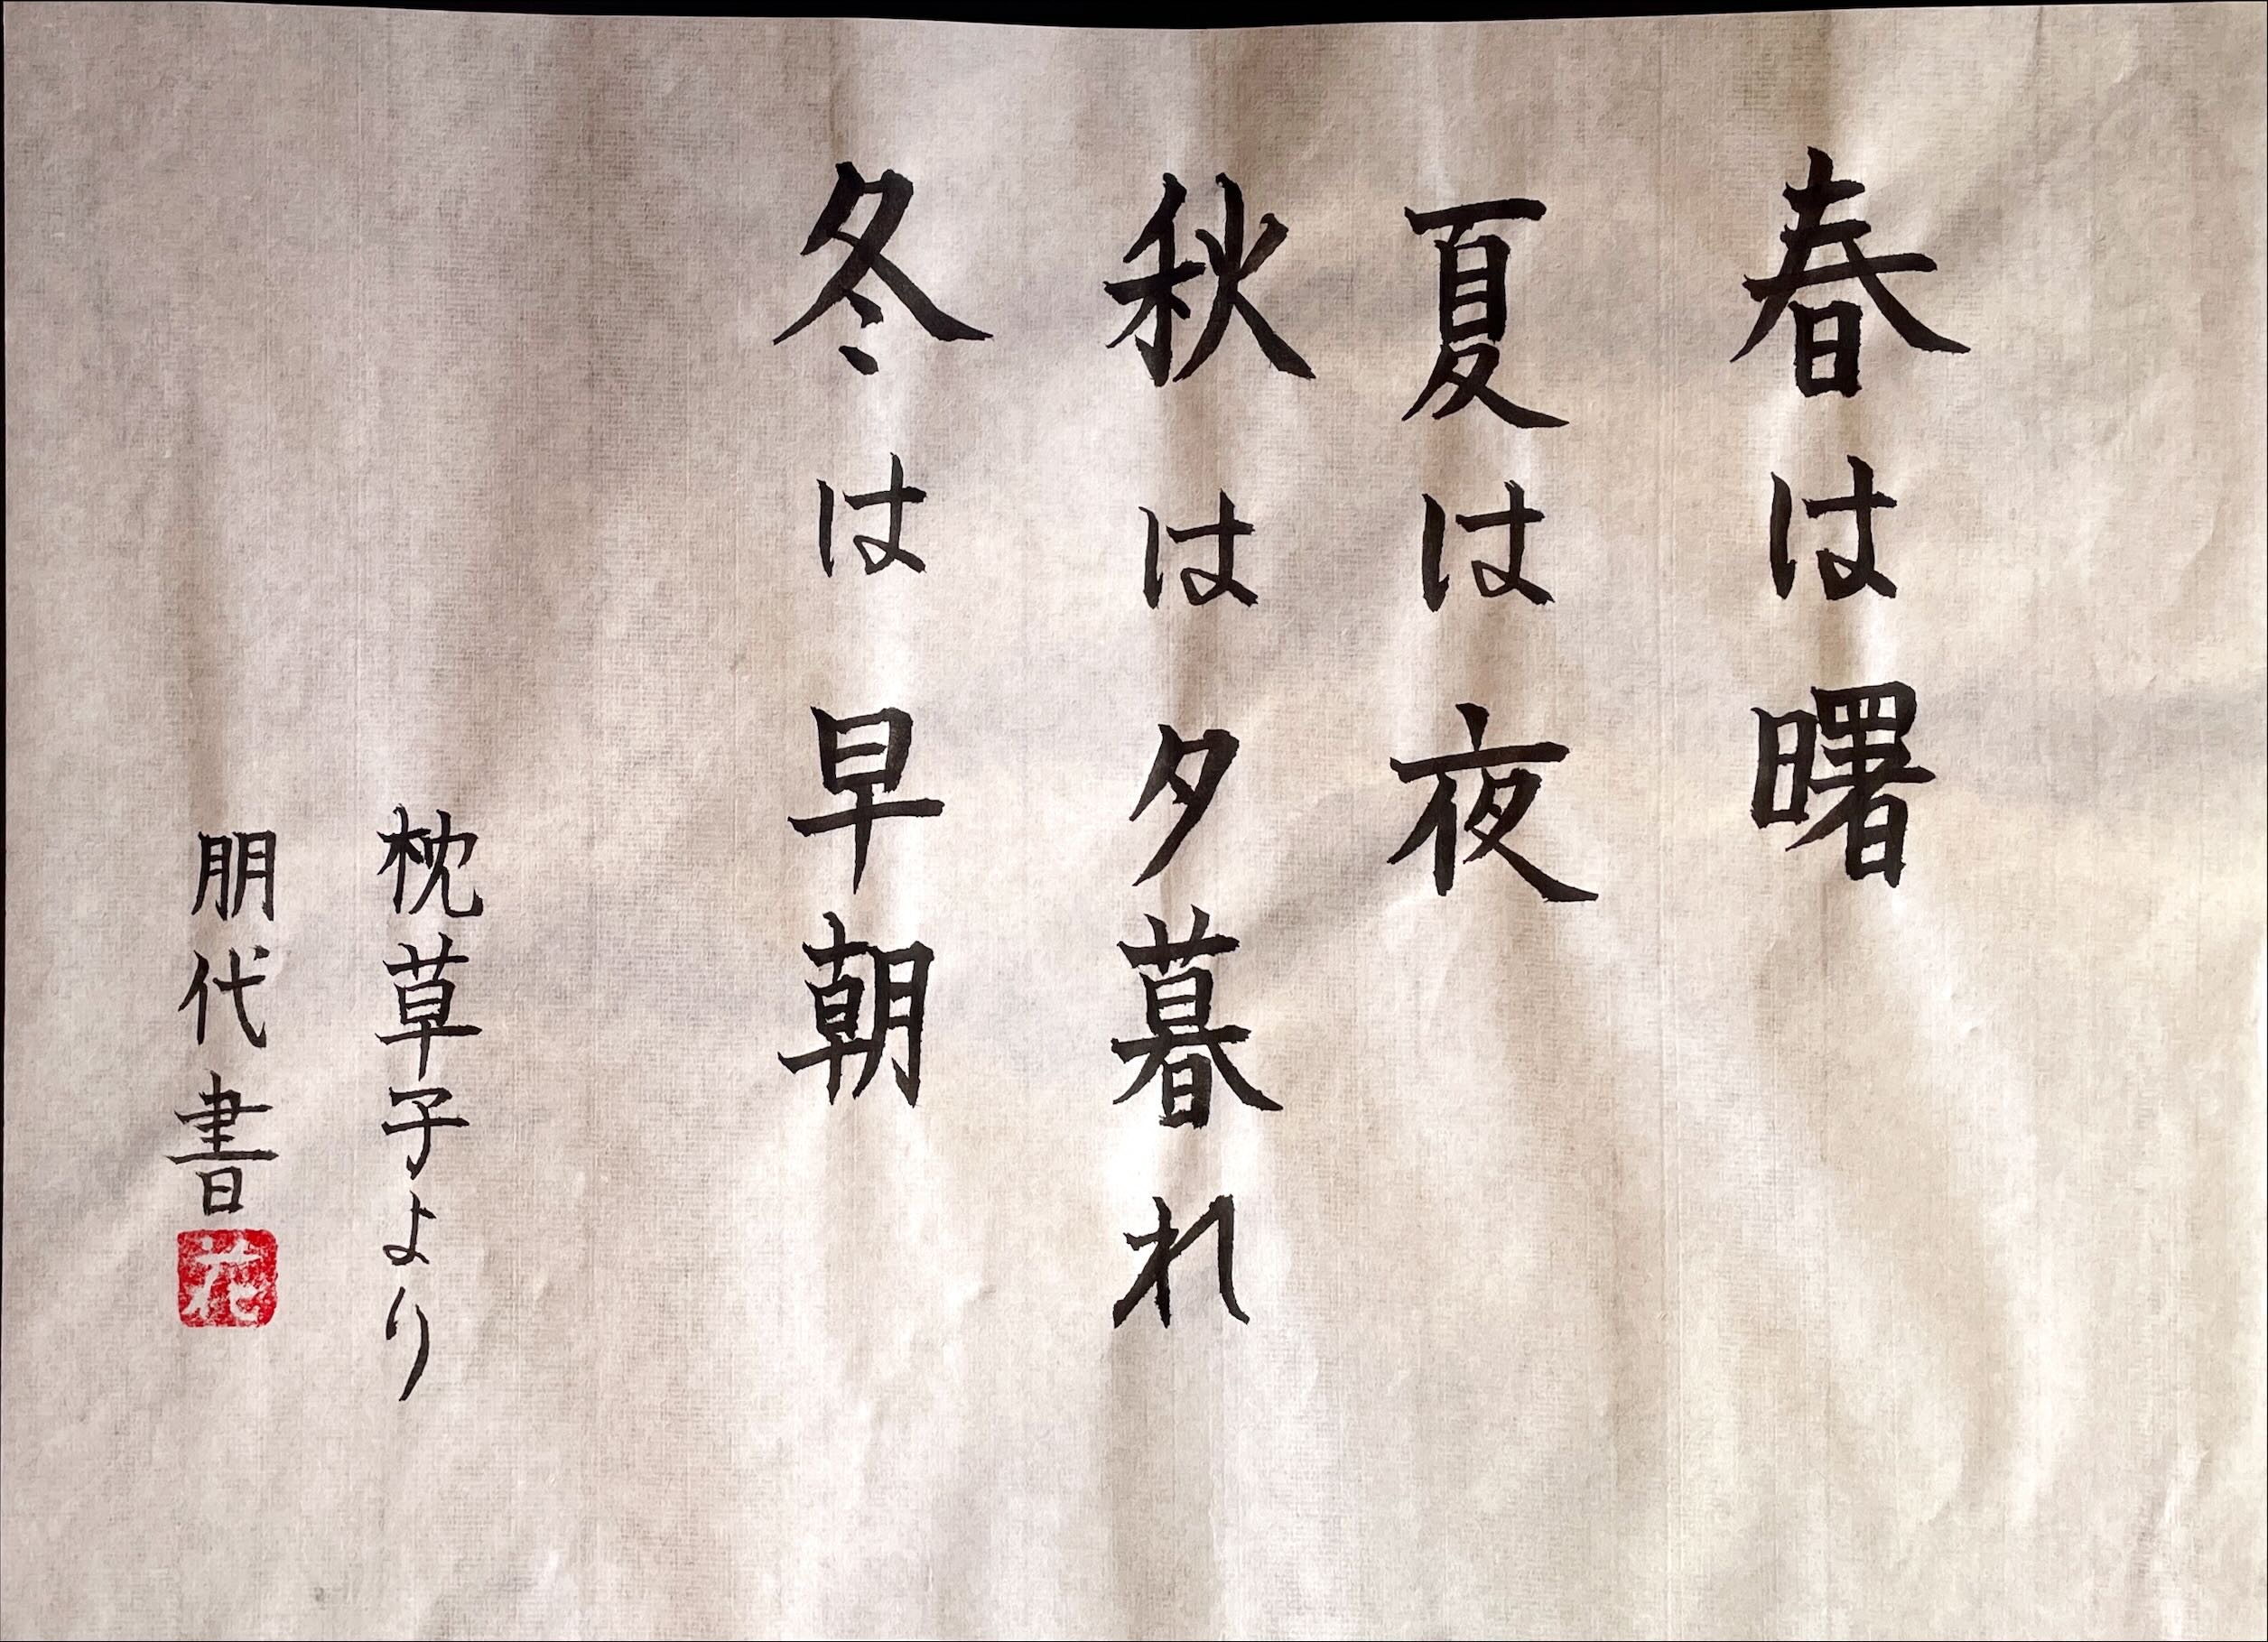 春は曙
夏は夜
秋は夕暮れ
冬は早朝
枕草子より
朋代書
花